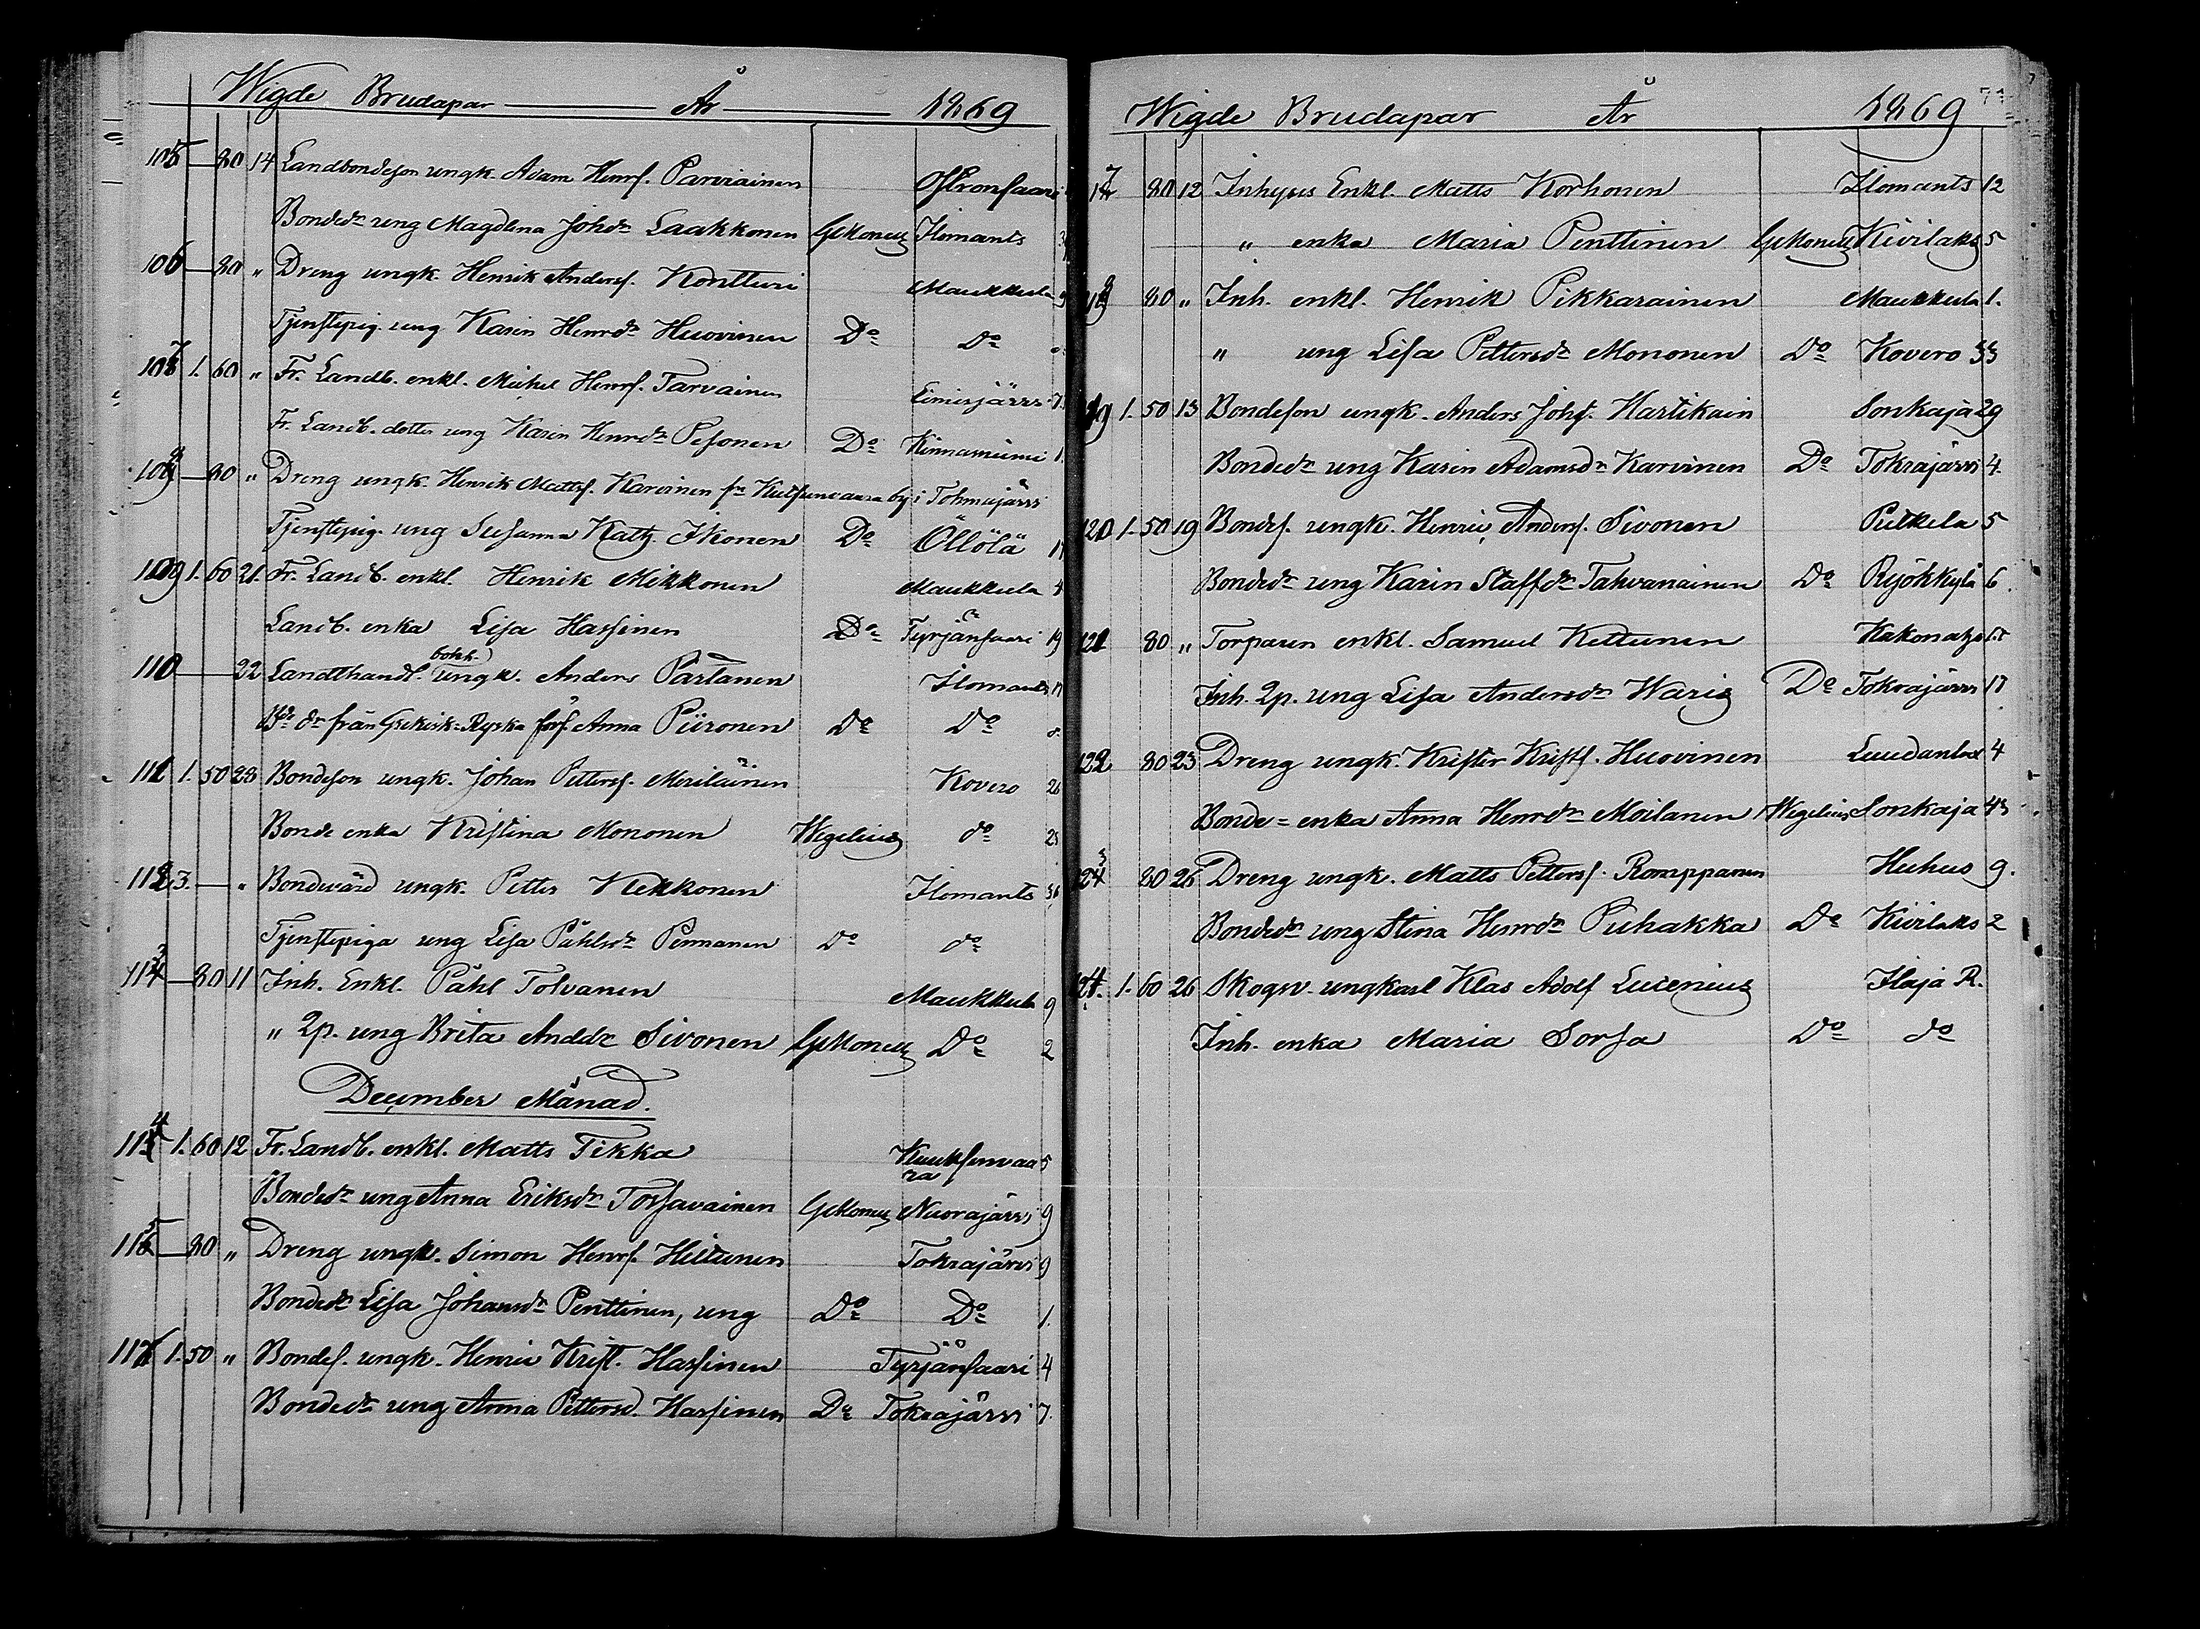 Wigde Brudapar År 1869
105 — 80 14 Landbondeson ungk. Adam Henrs. Parviainen Ostronsaari
Bondedr ung Magdlena Johdr Laakkonen GMoneus Ilomants
106 — 80 " Dreng ungk. Henrik Anders. Kontturi Maukkula
Tjenstepig. ung Karin Henrdr Huovinen Do Do
107 1. 60 " Fr. Landb. enkl. Michel Henrs. Tarvainen Eimisjärvi 7.
Fr. Landb. dotter ung Karin Henrdr Pesonen Do Kinnasniemi 1.
108 — 80 " Dreng ungk. Henrik Mattss. Karvinen frn Kutsunvaara by i Tohmajärvi
Tjenstepig. ung Susanna Kath. Ikonen Do Öllölä
109 1. 60 21. Fr. Landb. enkl. Henrik Mikkonen Maukkula 4
Landb. enka Lisa Hassinen Do Tyrjänsaari 19
110 — 22 Landthandl. bokh. ungk. Anders Partanen Ilomants 17
Bde dr från Grekisk-Ryska förs. Anna Piironen Do Do
111 1. 50 28 Bondeson ungk. Johan Petterss. Meriläinen Kovero 26
Bonde enka Kristina Mononen Wegelius do 25
112 3. — " Bondevärd ungk. Petter Kekkonen Ilomants 36
Tjenstepiga ung Lisa Påhlsdr Pennanen Do do
113 — 80 11 Inh. Enkl. Påhl Tolvanen Maukkula 9
" 2p. ung Brita Anddr Sivonen GMoneus Do 2
December Månad.
114 1. 60 12 Fr. Landb. enkl. Matts Tikka Kuuksenvaara 5
Bondedr ung Anna Eriksdr Torsavainen GMoneus Nuorajärvi 9
115 — 80 " Dreng ungk. Simon Henrs. Hiltunen Tokrajärvi 9
Bondedr Lisa Johansdr Penttinen, ung Do Do 1.
116 1. 50 " Bondes. ungk. Henric Krist. Hassinen Tyrjänsaari 4
Bondedr ung Anna Pettersd. Hassinen Do Tokrajärvi 7.
Wigde Brudapar År 1869 71
117 80 12 Inhyses Enkl. Matts Korhonen Ilomants 12
" enka Maria Penttinen GMoneus Kivilaks 5
118 80 " Inh. enkl. Henrik Pikkarainen Maukkula 1.
" ung Lisa Pettersdr Mononen Do Kovero 33
119 1. 50 13 Bondeson ungk. Anders Johs. Hartikain Sonkaja 29
Bondedr ung Karin Adamsdr Karvinen Do Tokrajärvi 4.
120 1. 50 19 Bondes. ungk. Henric Anders. Sivonen Putkela 5
Bondedr ung Karin Staffdr Tahvanainen Do Ryökkylä 6.
121 80 " Torparen enkl. Samuel Kettunen Kakonaho
Inh. 2p. ung Lisa Andersdr Waris Do Tokrajärvi 17
122 80 23 Dreng ungk. Krister Krists. Huovinen Luudanlax 4
Bonde=enka Anna Henrdr Moilanen Wegelius Sonkaja 43
123 80 26 Dreng ungk. Matts Petterss. Romppanen Huhus 9.
Bondedr ung Stina Henrdr Puhakka Do Kivilaks 2
124. 1. 60 26 Skogsv. ungkarl Klas Adolf Lucenius Ilaja R.
Inh. enka Maria Sorsa Do do